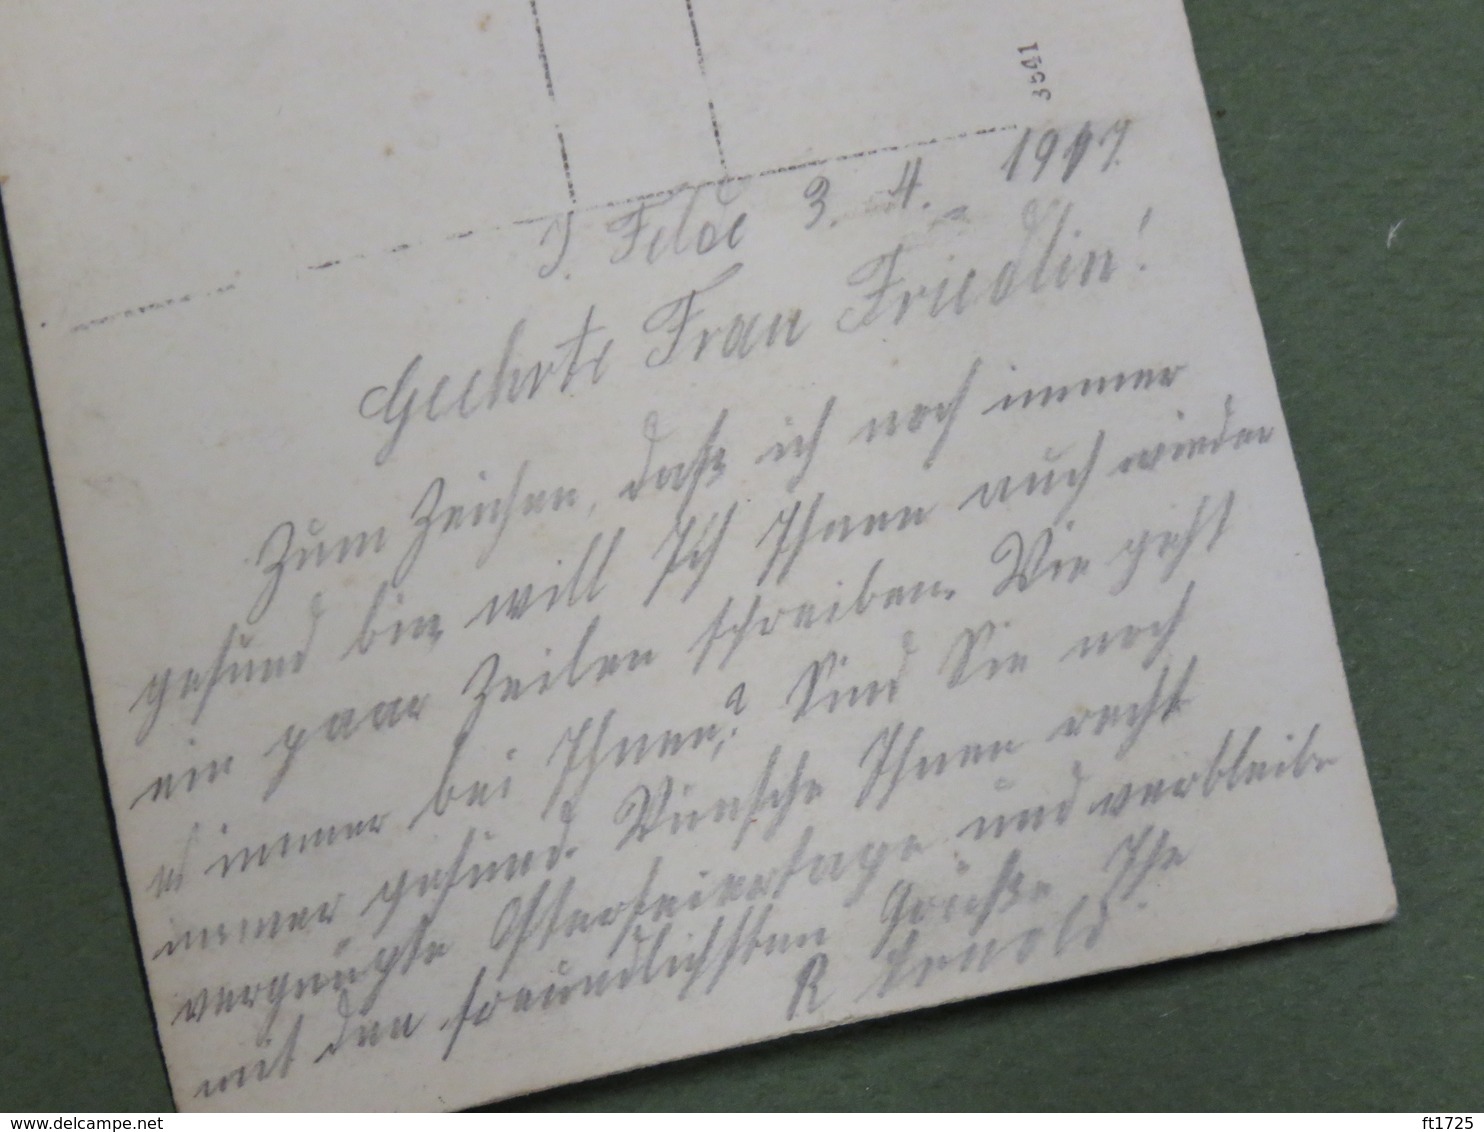 3541
I. Felde 3. 4. 1917.
Geehrte Frau Friedlin!
Zum Zeichen, daß ich noch immer
gesund bin, will Ich Ihnen auch wieder
ein paar Zeilen schreiben. Wie geht
es immer bei Ihnen? Sind Sie noch
immer gesund. Wünsche Ihnen recht
vergnügte Osterfeiertage und verbleibe
mit den freundlichsten Grüße Ihr
R Arnold.
delcampe.net
ft1725